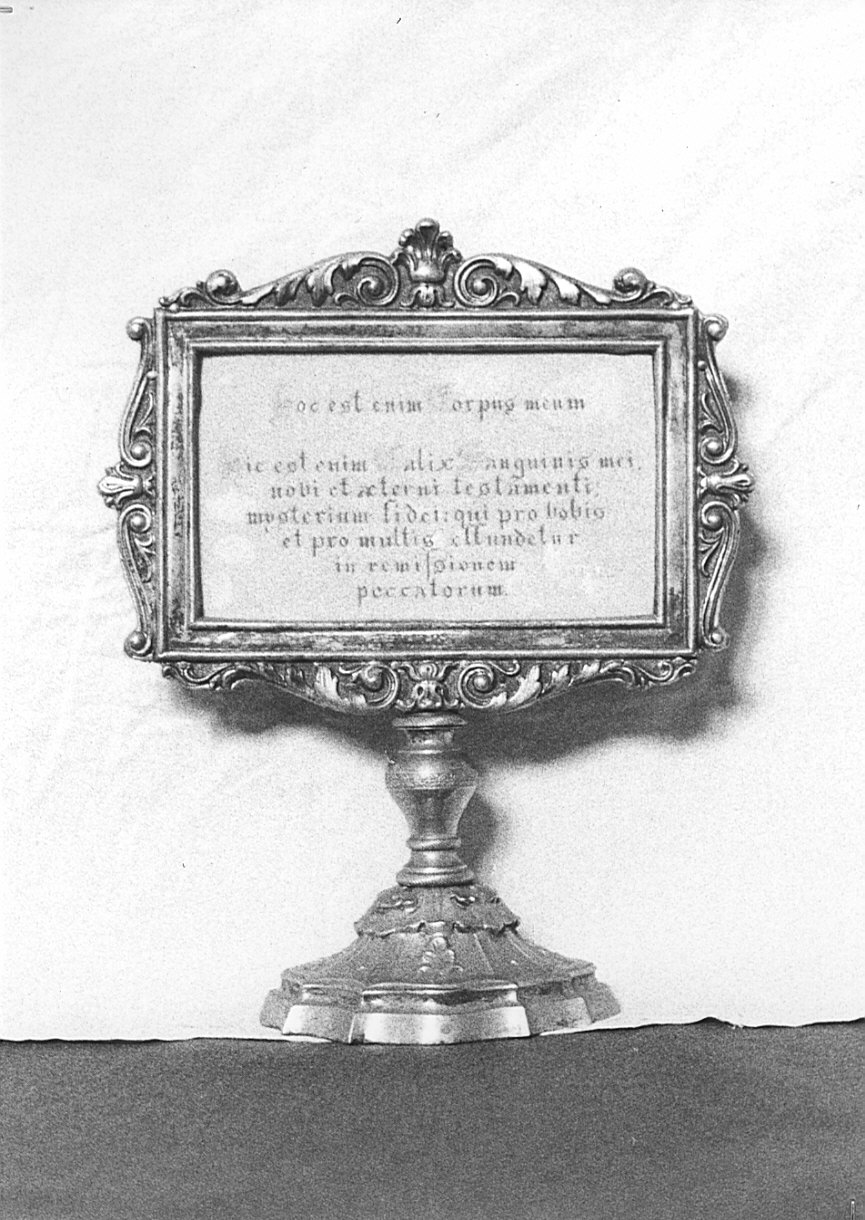 Hoc est enim Corpus meum
Hic est enim Calix Sanguinis mei,
novi et æterni testamenti;
mysterium fidei: qui pro vobis
et pro multis effundetur
in remiſsionem
peccatorum.